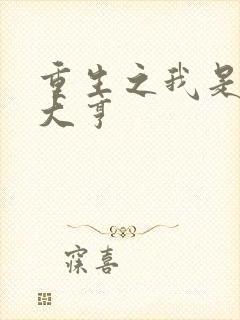 重生之我是
大亨
寐喜